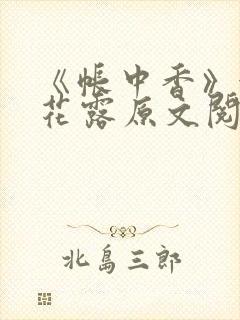 《帐中香》
花露原文阅
北島三郎